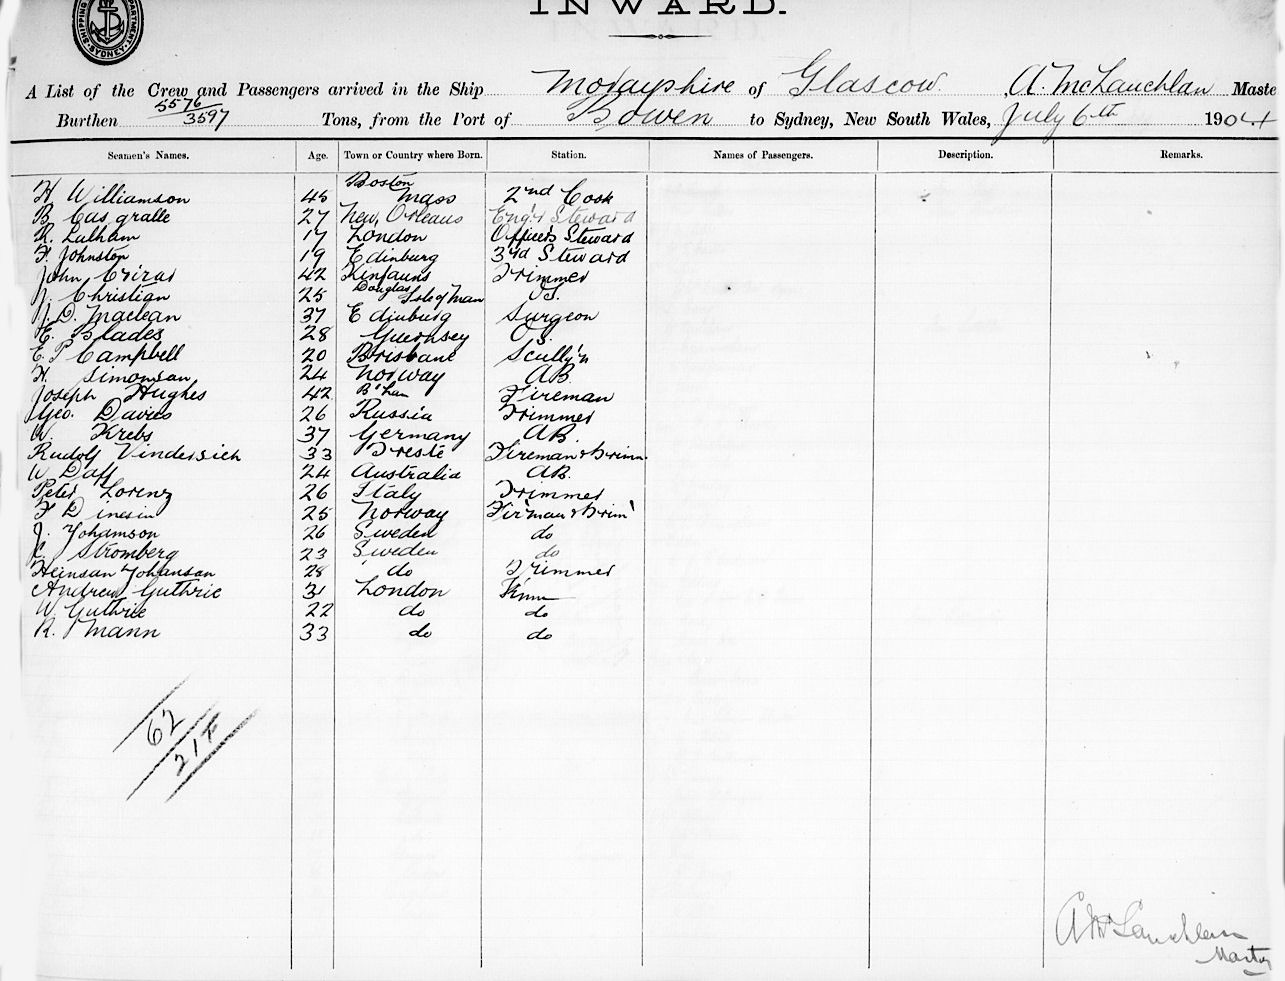 INWARD.
SHIPPING DEPARTMENT SYDNEY
A List of the Crew and Passengers arrived in the Ship Morayshire of Glascow. A. McLauchlan Maste
Burthen 5576/3597 Tons, from the Port of Bowen to Sydney, New South Wales, July 6th 1904
Seamen's Names. Age. Town or Country where Born. Station. Names of Passengers. Description. Remarks.
H Williamson 45 Boston Mass 2nd Cook
B. Casgralle 27 New Orleans Eng'rs Steward
R. Lulham 17 London Officers Steward
F. Johnston 19 Edinburg 3rd Steward
John 42 Kinfauns Trimmer
J. Christian 25 Douglas Isle of Man OS.
J. D. Maclean 37 Edinburg Surgeon
E. Blades 28 Guernsey OS.
E. P Campbell 20 Brisbane Scully'n
H. Simonsan 24 Norway AB.
Joseph Hughes 42 B'ham Fireman
Geo. Davies 26 Russia Trimmer
W. Krebs 37 Germany AB.
Rudolf Vindersich 33 Treste Fireman & Trimm
W Daff 24 Australia AB.
Peter Lorenz 26 Italy Trimmer
F Dinesin 25 Norway Fir'man & Trim'
J. Yohamson 26 Sweden do
C. Stromberg 23 Sweden do
Heinsan Yohansan 28 do Trimmer
Andrew Guthrie 31 London
W Guthrie 22 do do
R. Mann 33 do do
62
21 F
A McLauchlan
Master